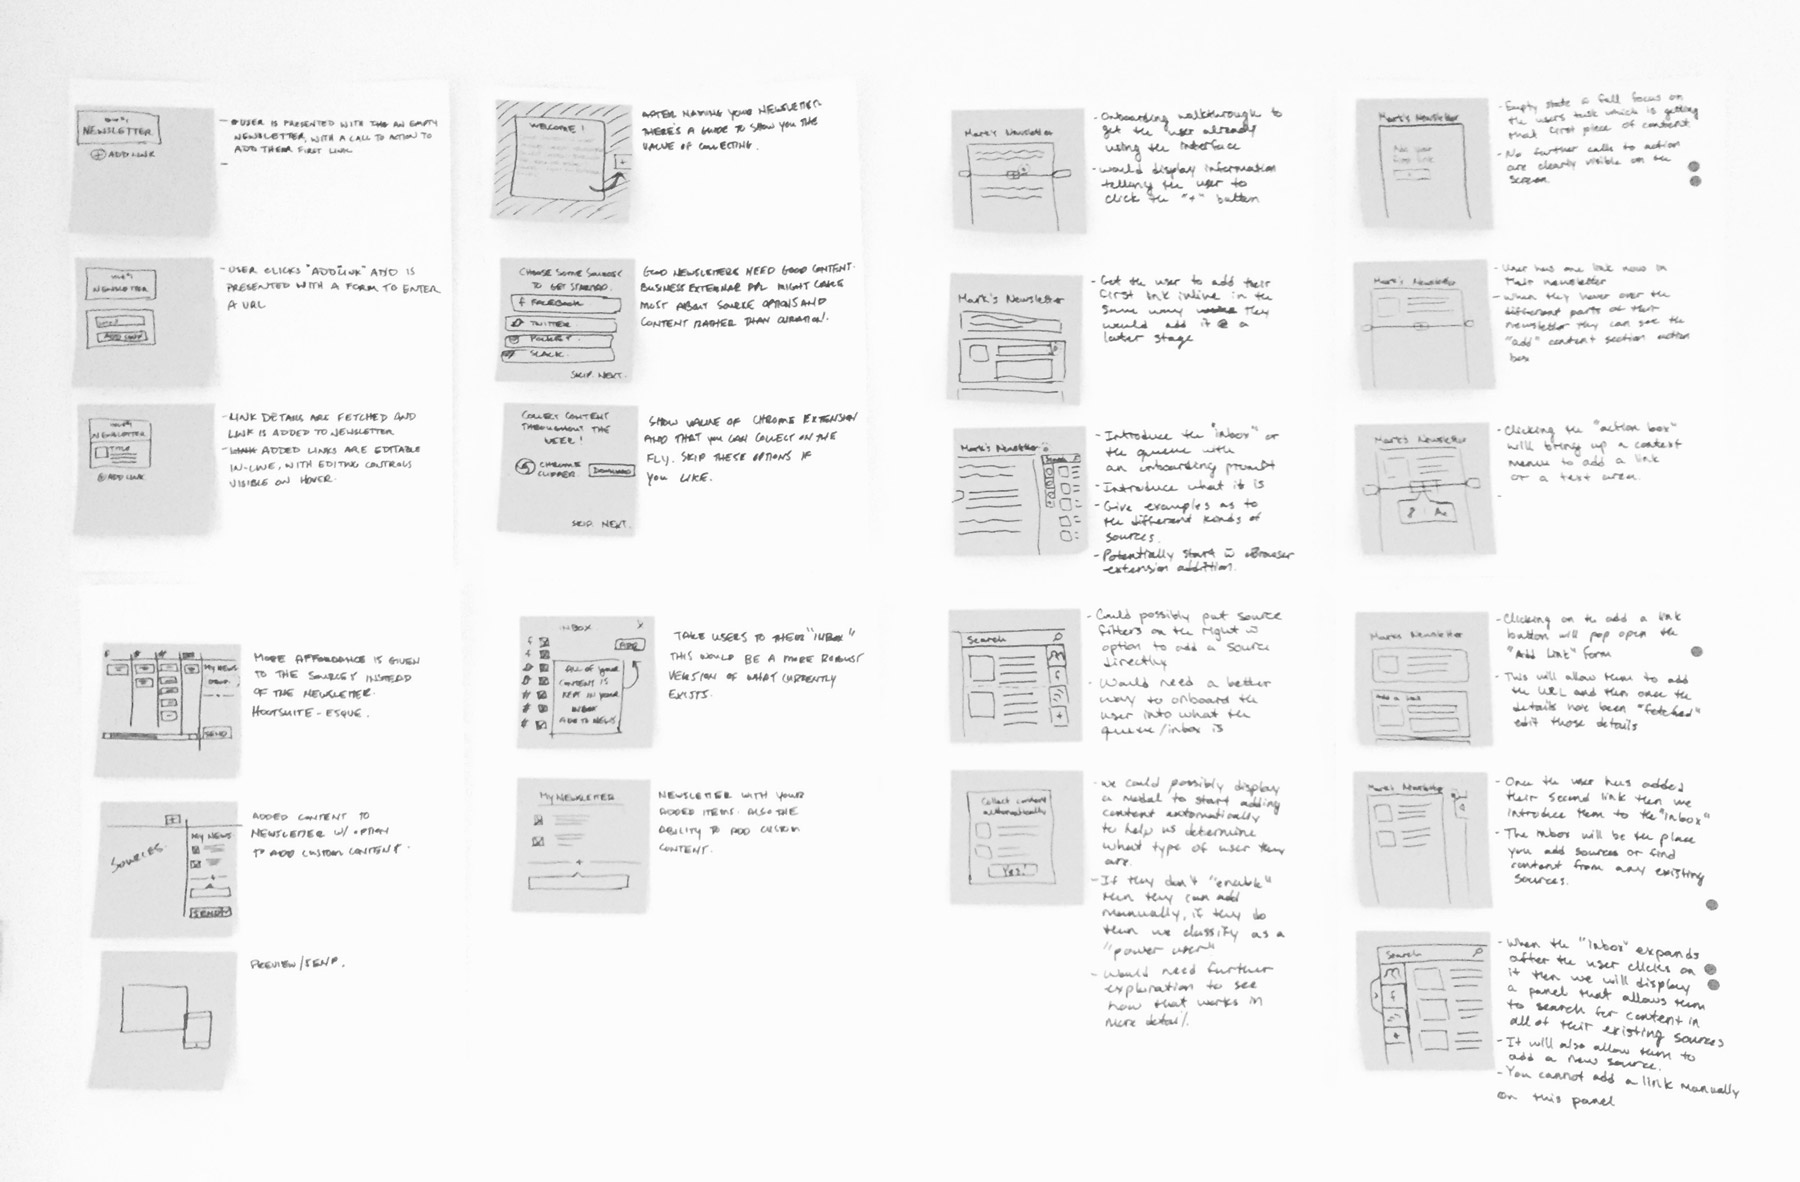 NEWSLETTER
+ ADD LINK
- USER IS PRESENTED WITH AN EMPTY
NEWSLETTER, WITH A CALL TO ACTION TO
ADD THEIR FIRST LINK
-
NEWSLETTER
ADD LINK
- USER CLICKS "ADD LINK" AND IS
PRESENTED WITH A FORM TO ENTER
A URL
NEWSLETTER
TITLE
+ ADD LINK
- LINK DETAILS ARE FETCHED AND
LINK IS ADDED TO NEWSLETTER
- ADDED LINKS ARE EDITABLE
IN-LINE, WITH EDITING CONTROLS
VISIBLE ON HOVER.
MY NEWS
SEND
MORE AFFORDANCE IS GIVEN
TO THE SOURCES INSTEAD
OF THE NEWSLETTER.
HOOTSUITE-ESQUE.
+
SOURCES.
MY NEWS
+
SEND
ADDED CONTENT TO
NEWSLETTER W/ OPTION
TO ADD CUSTOM CONTENT.
PREVIEW/SEND.
WELCOME!
+
AFTER NAMING YOUR NEWSLETTER
THERE'S A GUIDE TO SHOW YOU THE
VALUE OF COLLECTING.
CHOOSE SOME SOURCES
TO GET STARTED.
f FACEBOOK
TWITTER
POCKET.
SLACK.
SKIP. NEXT.
GOOD NEWSLETTERS NEED GOOD CONTENT.
BUSINESS EXTERNAL PPL MIGHT CARE
MOST ABOUT SOURCE OPTIONS AND
CONTENT RATHER THAN CURATION.
COLLECT CONTENT
THROUGHOUT THE
WEEK!
CHROME
CLIPPER.
DOWNLOAD
SKIP. NEXT.
SHOW VALUE OF CHROME EXTENSION
AND THAT YOU CAN COLLECT ON THE
FLY. SKIP THESE OPTIONS IF
YOU LIKE.
INBOX
X
ADD
ALL OF YOUR
CONTENT IS
KEPT IN YOUR
INBOX
ADD TO NEWS
TAKE USERS TO THEIR "INBOX"
THIS WOULD BE A MORE ROBUST
VERSION OF WHAT CURRENTLY
EXISTS.
MY NEWSLETTER
+
NEWSLETTER WITH YOUR
ADDED ITEMS. ALSO THE
ABILITY TO ADD CUSTOM
CONTENT.
Mark's Newsletter
- Onboarding walkthrough to
get the user already
using the interface
- would display information
telling the user to
click the "+" button
Mark's Newsletter
- Get the user to add their
first link inline in the
same way they
would add it @ a
later stage
Mark's Newsletter
Search
- Introduce the "inbox" or
the queue with
an onboarding prompt
- Introduce what it is
- Give examples as to
the different kinds of
sources.
- Potentially start w Browser
extension addition.
Search
f
+
- Could possibly put source
filters on the right w
option to add a source
directly
- Would need a better
way to onboard the
user into what the
queue/inbox is
Collect content
automatically
Yes!
- We could possibly display
a modal to start adding
content automatically
to help us determine
what type of user they
are.
- If they don't "enable"
then they can add
manually, if they do
then we classify as a
"power user"
- Would need further
exploration to see
how that works in
more detail.
Mark's Newsletter
Add your
first link
- Empty state & full focus on
the users task which is getting
that first piece of content
- No further calls to action
are clearly visible on the
screen
Mark's Newsletter
- User has one link now in
their newsletter
- When they hover over the
different parts of their
newsletter they can see the
"add" content section action
box
Mark's Newsletter
Aa
- Clicking the "action box"
will bring up a context
menu to add a link
or a text area.
-
Mark's Newsletter
Add a link
- Clicking on the add a link
button will pop open the
"Add Link" form
- This will allow them to add
the URL and then once the
details have been "fetched"
edit those details
Mark's Newsletter
- Once the user has added
their second link then we
introduce them to the "inbox"
- The inbox will be the place
you add sources or find
content from any existing
sources.
Search
f
+
- When the "inbox" expands
after the user clicks on
it then we will display
a panel that allows them
to search for content in
all of their existing sources
- It will also allow them to
add a new source.
- You cannot add a link manually
on this panel